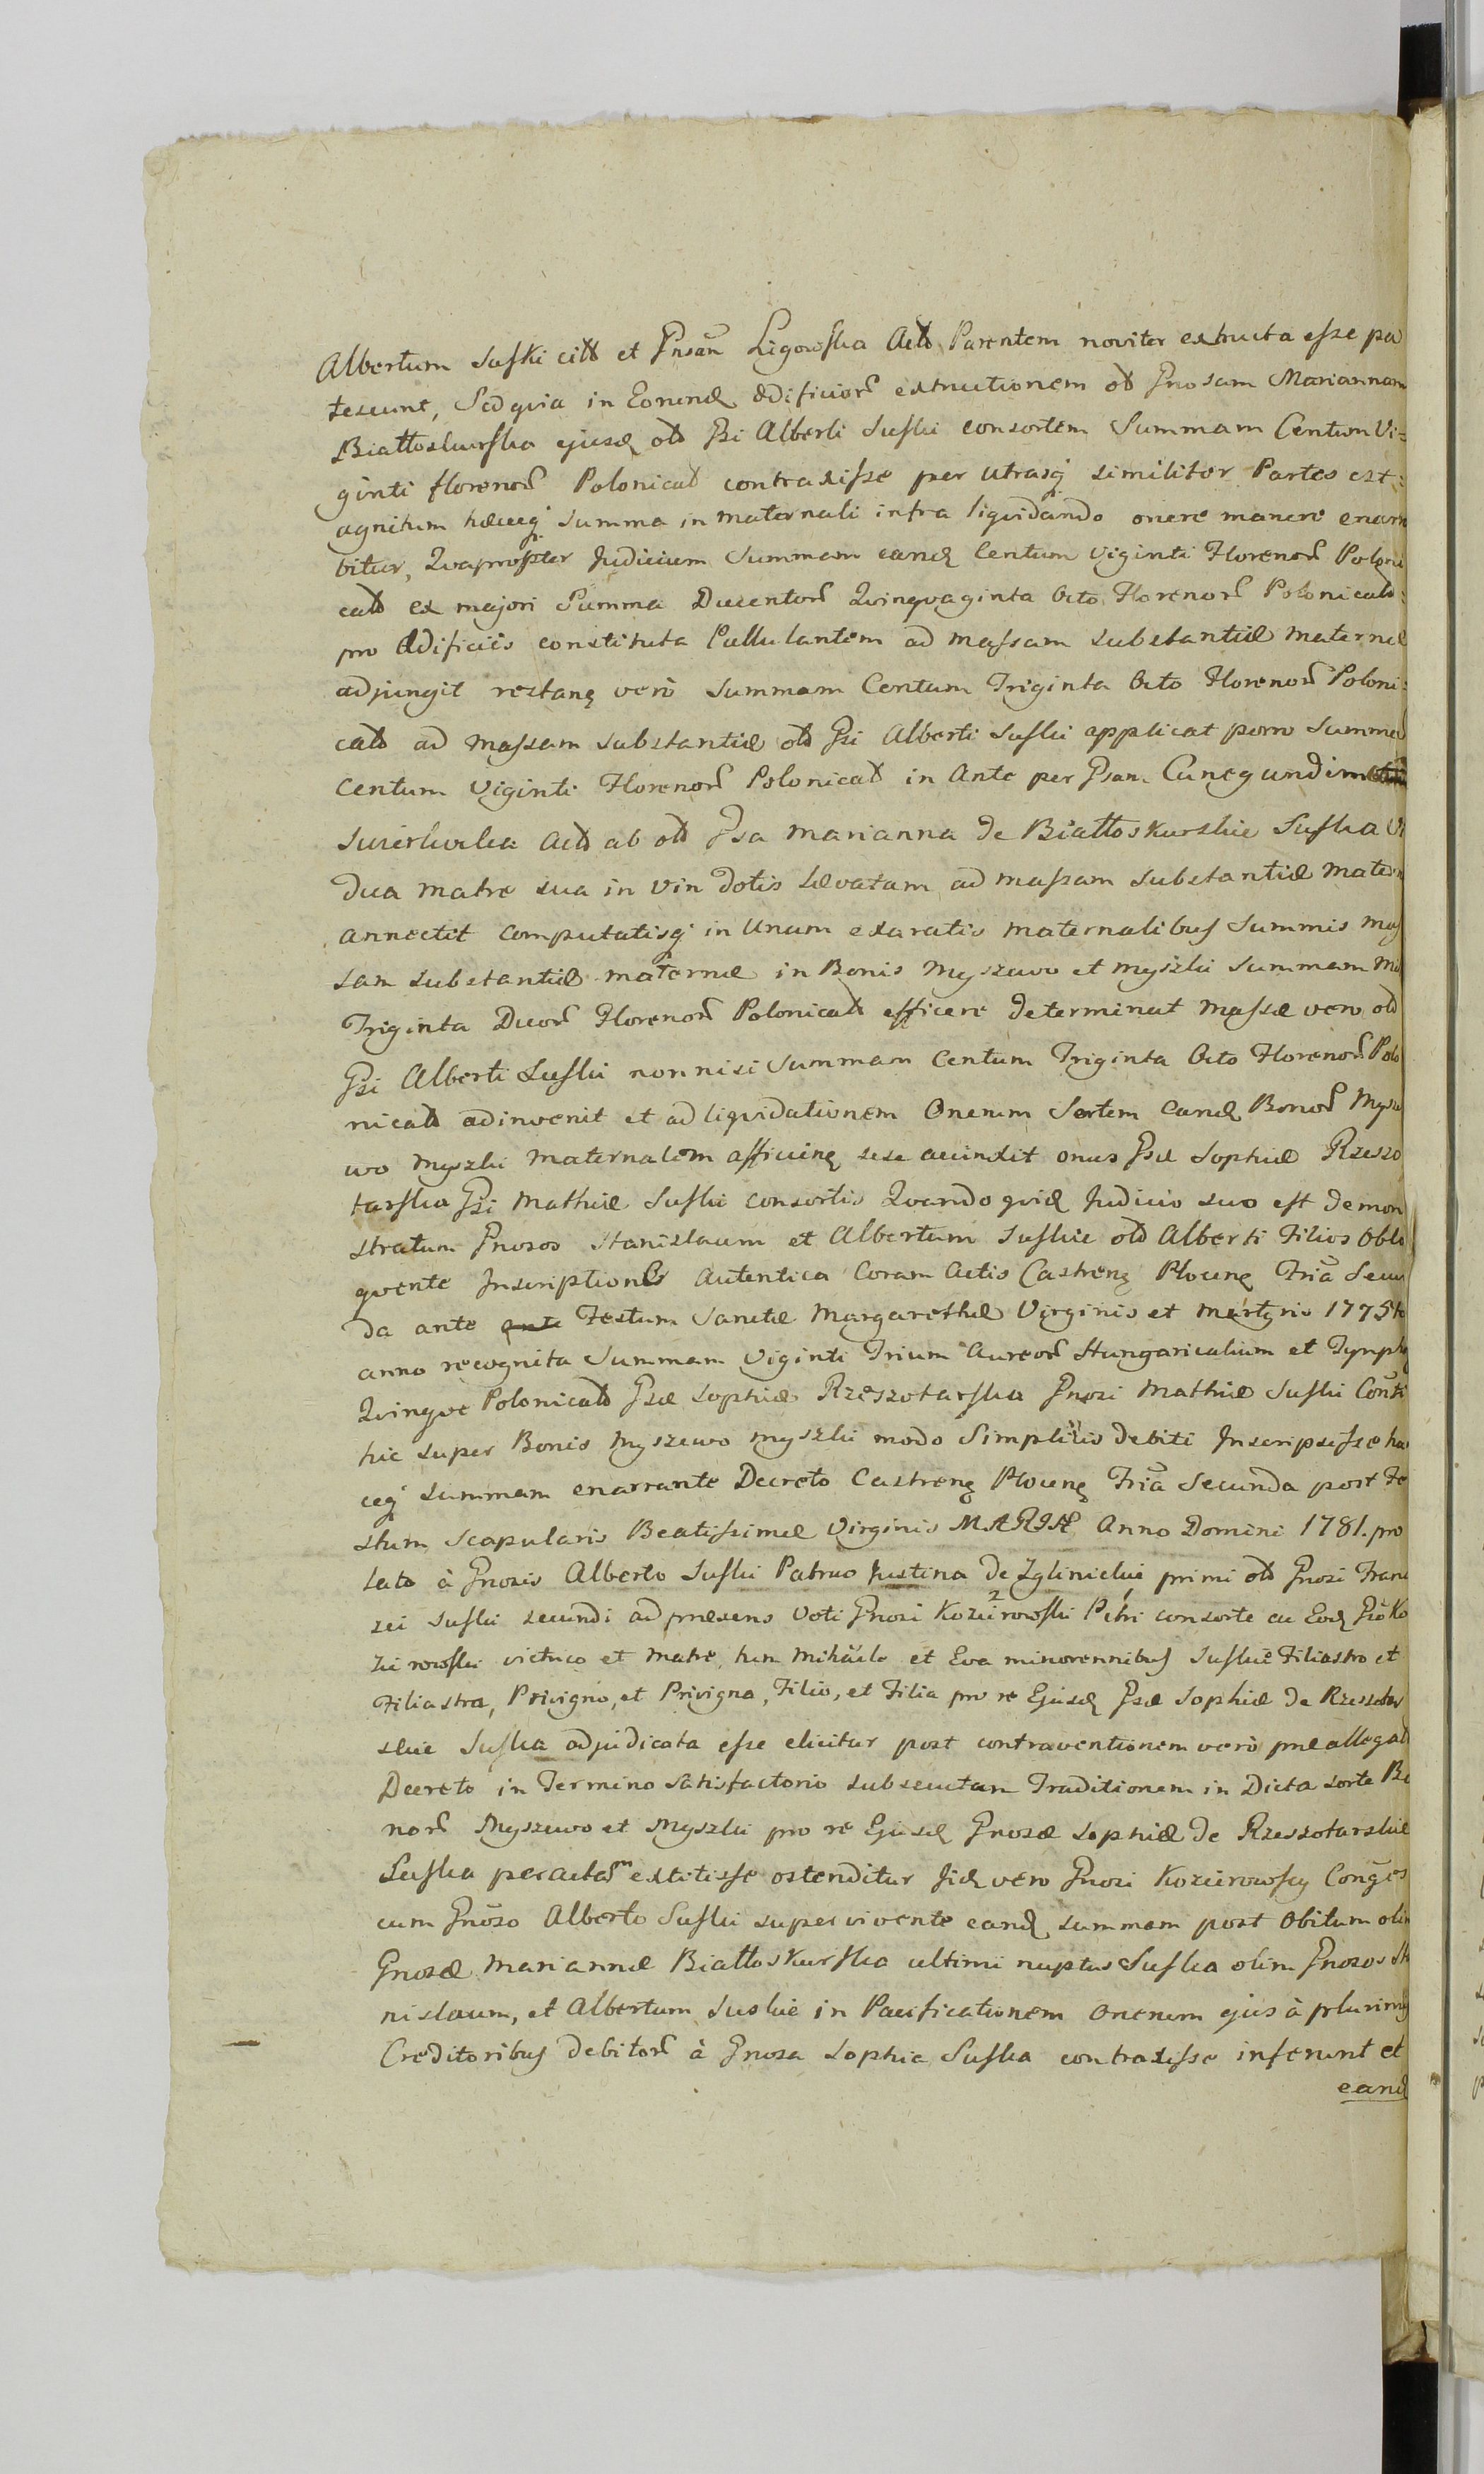 Albertum Suski citt et Gnsam Ligowska Actt Parentem noviter extructa esse pa
tescunt, Sed quia in Eorund ædificior extructionem ott Gnosam Mariannam
Białłoskurska ejusd ott Gsi Alberti Suski consortem Summam Centum Vi=
ginti florenor Polonicat contraxisse per utrasq similiter Partes est
agnitum hæcceq summa in maternali infra liquidando onere manere enarra
bitur, Quapropter Judicium Summam eand Centum Viginti Florenor Poloni
catt ex majori Summa Ducentor Quinquaginta Octo Florenor Polonicatt
pro Ædificiis constituta Pullulantem ad massam substantiæ maternæ
adjungit restanq verò Summam Centum Triginta Octo Florenor Poloni=
catt ad massam substantiæ ott Gsi Alberti Suski applicat porro Summam
Centum Viginti Florenor Polonicatt in Ante per Gsam Cunegundim
Swierkulca Actt ab ott Gsa Marianna de Białłoskurskie Suska Vi
dua matre sua in vim dotis Lævatam ad massam substantiæ matern
annectit computatisq in Unum exaratis maternalibus Summis mas
sam substantiæ maternæ in Bonis Myszewo et Myszki Summam
Triginta Duor Florenor Polonicatt efficere determinat massæ vero ott
Gsi Alberti Suski non nisi Summam Centum Triginta Octo Florenor Polo
nicatt adinvenit et ad liquidationem Onerum Sortem Eand Bonor Mysze
wo Myszki maternalem afficienq sese accinxit onus Gsæ Sophiæ Rzeszo
tarska Gsi Mathiæ Suski consortis Quandoquid Judicio suo est demon
stratum Gnosos Stanislaum et Albertum Suskie ott Alberti Filios Oblo
quente Inscriptione Autentica Coram Actis Castrenq Plocenq Fria Secun
da ante Festum Sanctæ Margarethæ Virginis et Martyris 1775to
anno recognita Summam Viginti Trium Aureor Hungaricalium et Tynph
Quinque Polonicatt Gsæ Sophiæ Rzeszotarska Gnosi Mathiæ Suski Conti
hic super Bonis Myszewo Myszki modo Simplicis debiti Inscripsisse hac
ceq Summam enarrante Decreto Castrenq Plocenq Fria Secunda post Fe
stum Scapularis Beatissimæ Virginis MARIÆ Anno Domini 1781. pro
lato à Gnosis Alberto Suski Patruo Justina de Zglinickie primi ott Gnosi Franc
sci Suski secundi ad præsens Voti Gnosi Kozierowski Petri consorte cu Eod Gso Ko
zierowski victrico et Matre, tum Mihaële et Eva minorennibus Suskie Filiastro et
Filiastra, Privigno, et Privigna, Filio, et Filia pro re Ejusd Gsæ Sophiæ de Rzeszotar
skie Suska adjudicata esse elicitur post contraventionem verò præallegat
Decreto in Termino satisfactorio subsecutam Traditionem in Dicta sorte Bo
nor Myszewo et Myszki pro re Ejusd Gnosæ Sophiæ de Rzeszotarskie
Suska peractam extitisse ostenditur Iid vero Gnosi Kozierowscy Conges
cum Gnoso Alberto Suski supervivente eand summam post Obitum olim
Gnosæ Mariannæ Białłoskurska ultimi nuptus Suska olim Gnosos Sta
nislaum, et Albertum Suskie in Pacificationem Onerum ejus à plurimis
Creditoribus debitor à Gnosa Sophia Suska contraxisse inferunt et
eand